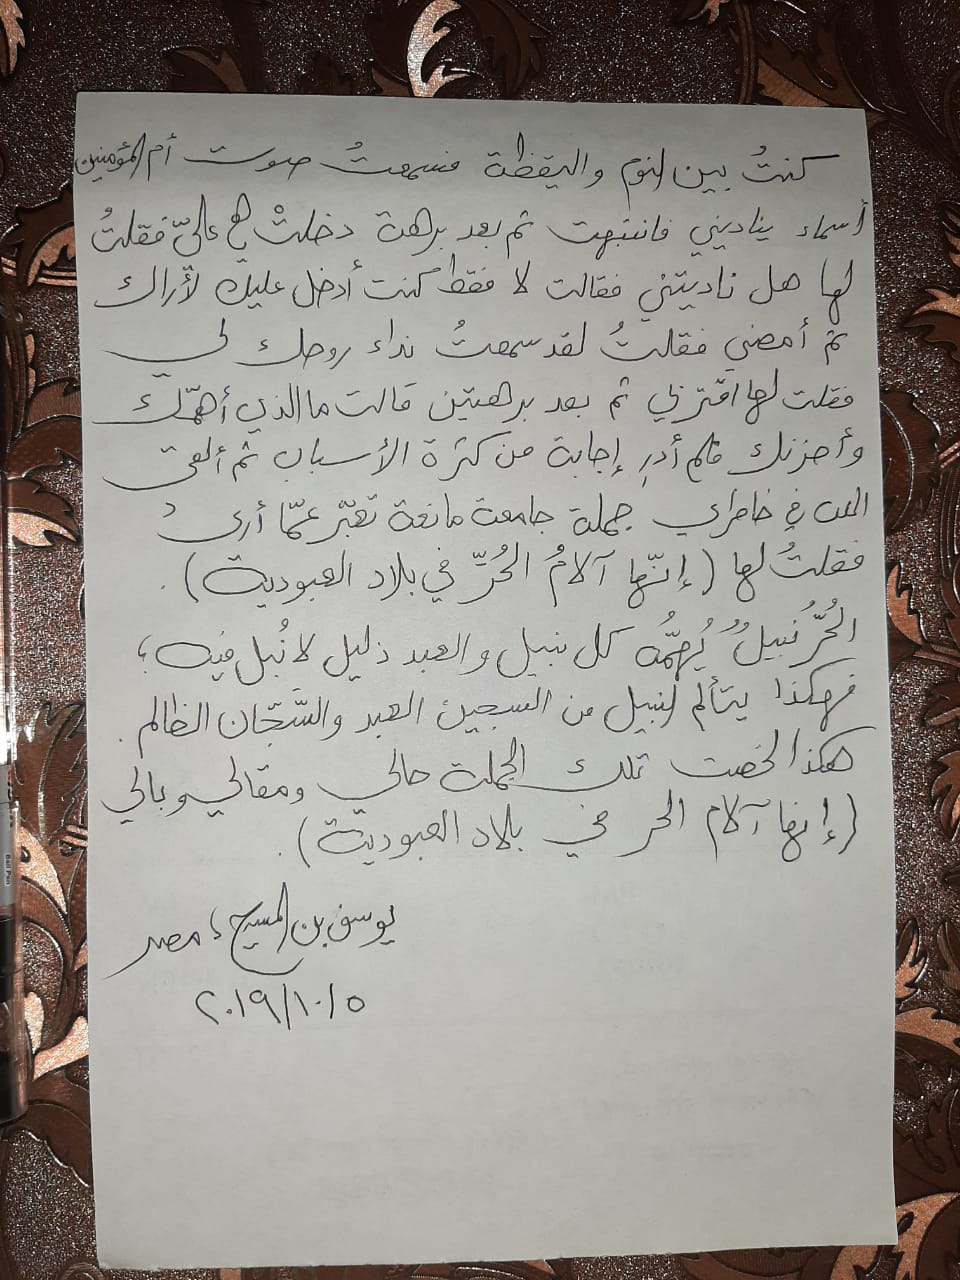 كنتُ بين النوم واليقظة فسمعتُ صوت أم المؤمنين
أسماء يناديني فانتبهت ثم بعد برهة دخلتْ هي عليّ فقلتُ
لها هل ناديتني فقالت لا فقط كنت أدخل عليك لأراك
ثم أمضي فقلتُ لقد سمعتُ نداء روحك لي
فقلت لها اقتربي ثم بعد برهتين قالت ما الذي أهمّك
وأحزنك فلم أدرِ إجابة من كثرة الأسباب ثم ألقى
الله في خاطري جملة جامعة مانعة تعبّر عمّا أرى
فقلتُ لها (إنّها آلامُ الحُرّ في بلاد العبودية).
الحُرّ نبيلٌ يُهمُّه كل نبيل والعبد ذليل لا نُبل فيه،
فهكذا يتألم النبيل من السجين العبد والسَّجّان الظالم.
هكذا لخصت تلك الجملة حالي ومقالي وبالي
(إنها آلام الحر في بلاد العبودية).
يوسف بن المسيح، مصر
٢٠١٩/١٠/٥
Ball Pen